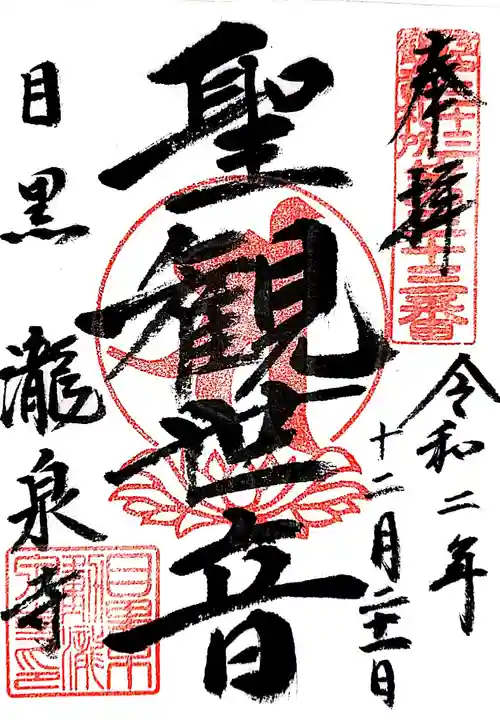 奉拝
令和二年
十二月二十一日
聖観世音
目黒 瀧泉寺